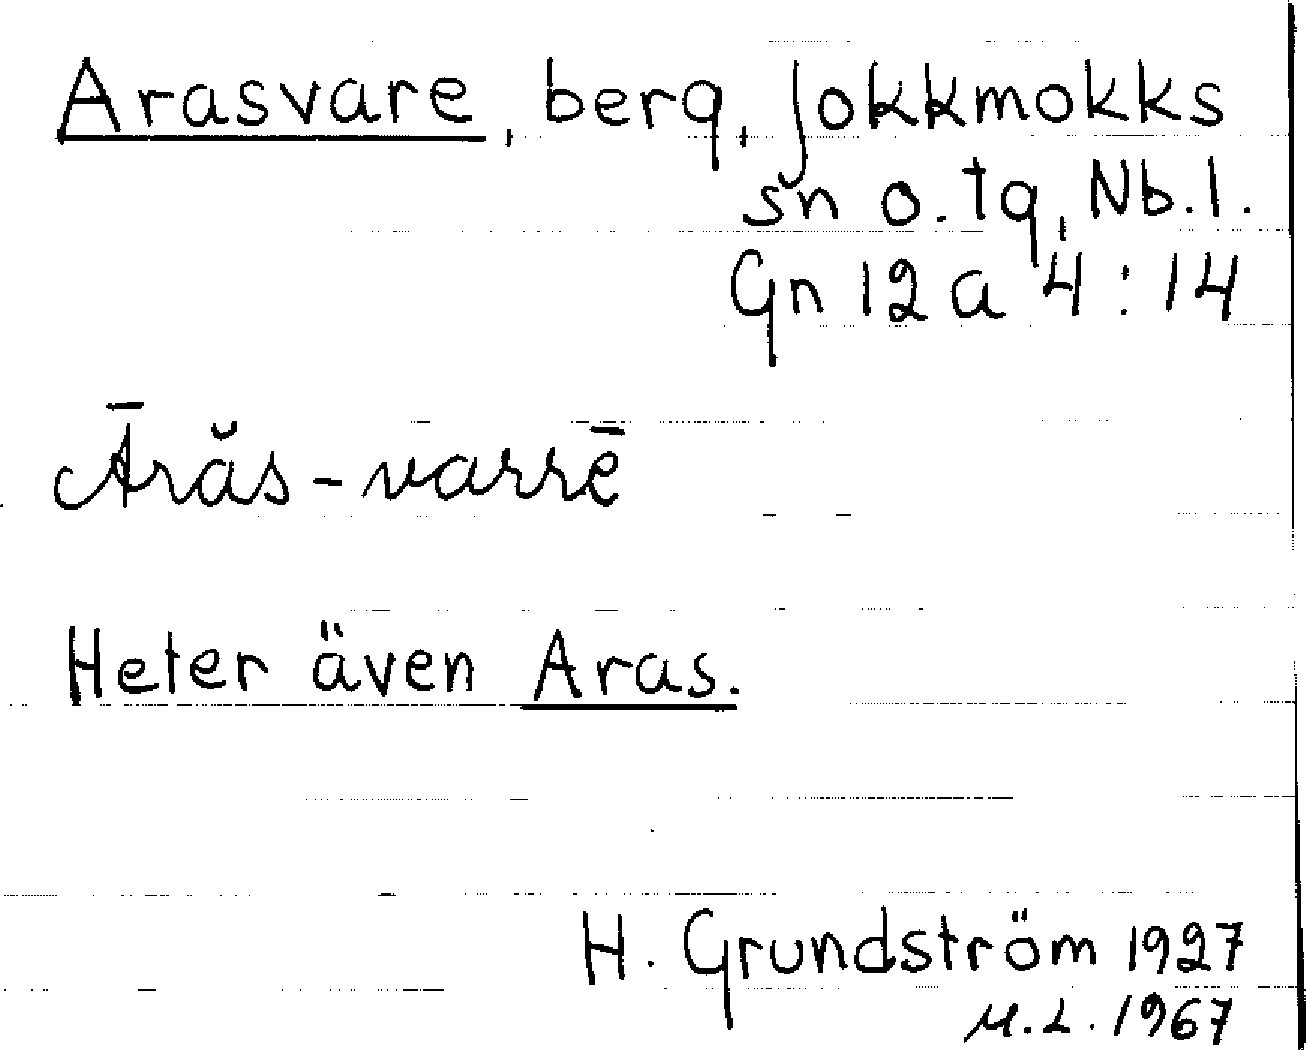 Arasvare, berg, Jokkmokks
sn o. tg, Nb. l.
Gn 12 a 4 : 14
Ārăs-varrē
Heter även Aras.
H. Grundström 1927
M.L. 1967